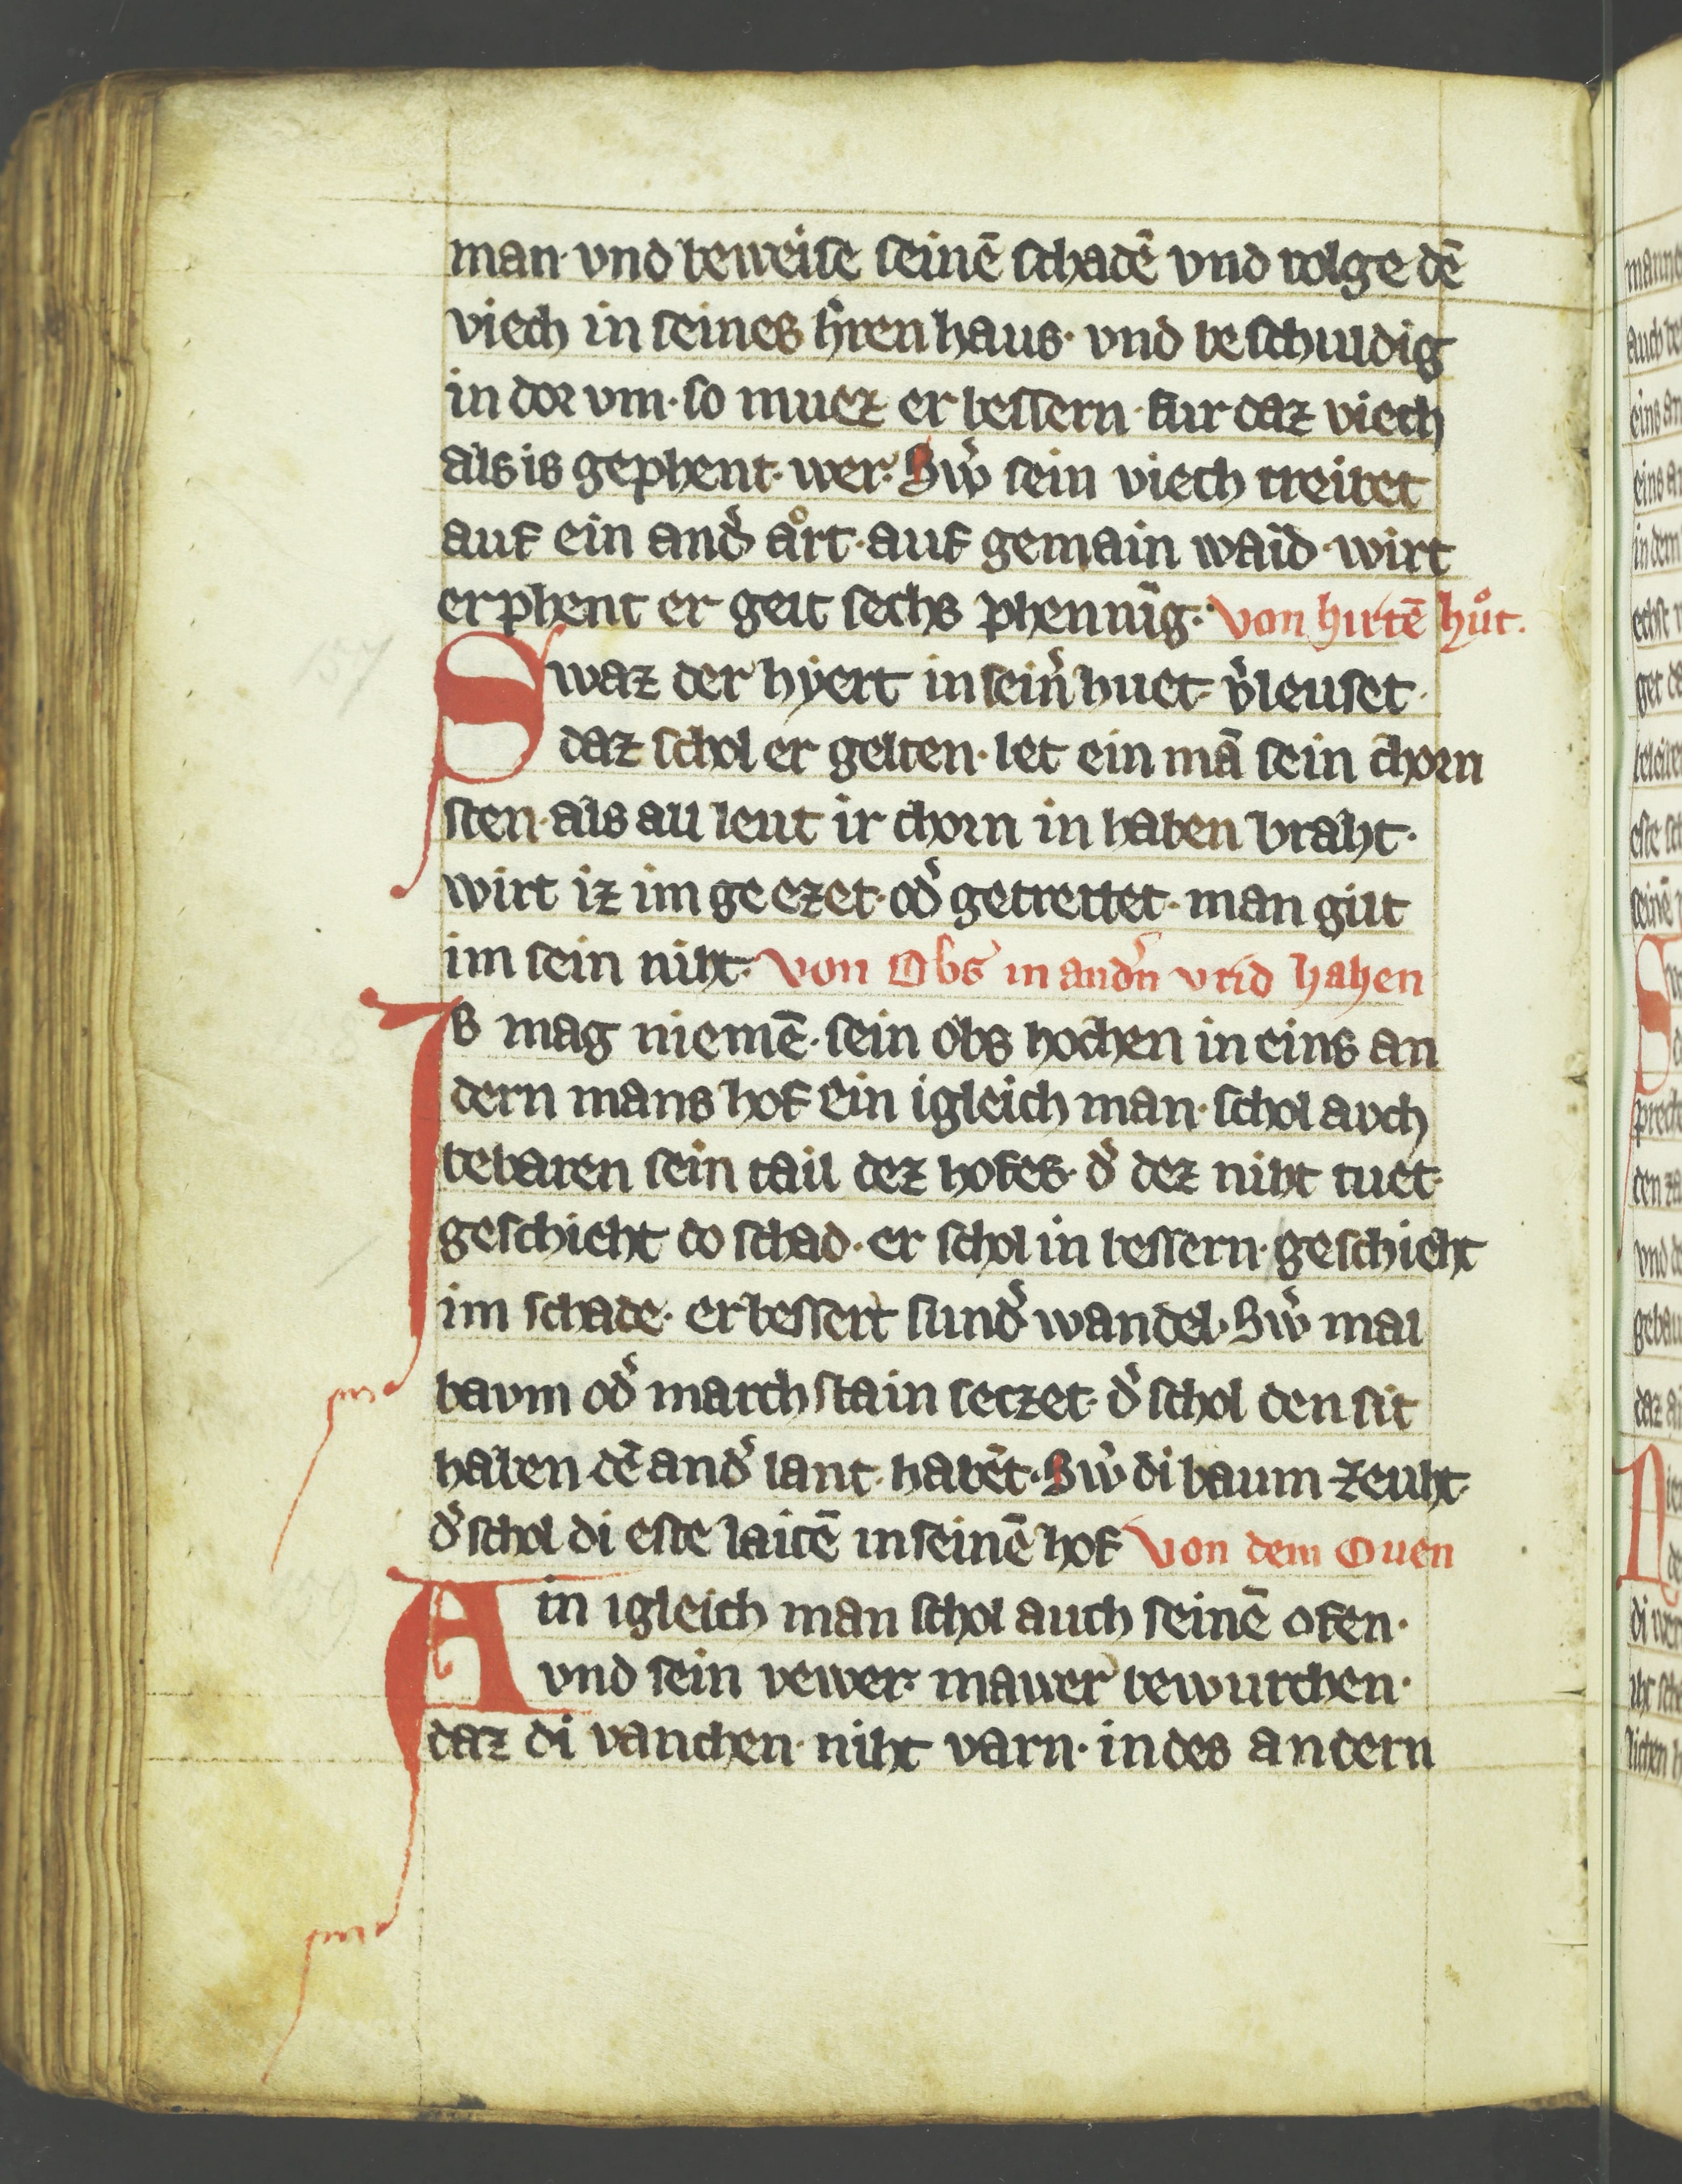 man· vnd beweise seinē schadē vnd volge dē
viech in seines h̾ren haus· vnd be schuldig
in dor vm· so muez er bessern· fur daz viech
als is gephent· wer· Sw̾ sein viech treibet
auf ein and̾ aͦrt· auf gemain waid· wirt
er phent er geit sechs phennīg· von hirtē huͦt.
Swaz der hyert in sein̾ huet· v̾leuset·
daz schol er gelten· let ein mā sein chorn
sten· als all leut ir chorn in haben braht·
wirt iz im ge ezet· od̾ getrettet· man gilt
im sein niht· von Obs in and̾n vrid hahen
Is mag niemē· sein obs hochen in eins an
dern mans hof ein igleich man· schol avch
bebaren sein tail dez hofes· d̾ dez niht tuet·
geschieht do schad· er schol in bessern· geschieht
im schade· er bessert sund̾ wandel· Sw̾ mal
bavm od̾ march stain seczet· d̾ schol den sit
haben dē and̾ lant· habēt· Sw̾ di baum zeuht·
d̾ schol di este laitē in seinē hof von dem Ouen
Ain igleich man schol auch seinē ofen·
vnd sein vewer· mawer bewurchen·
daz di vanchen· niht varn· in des andern